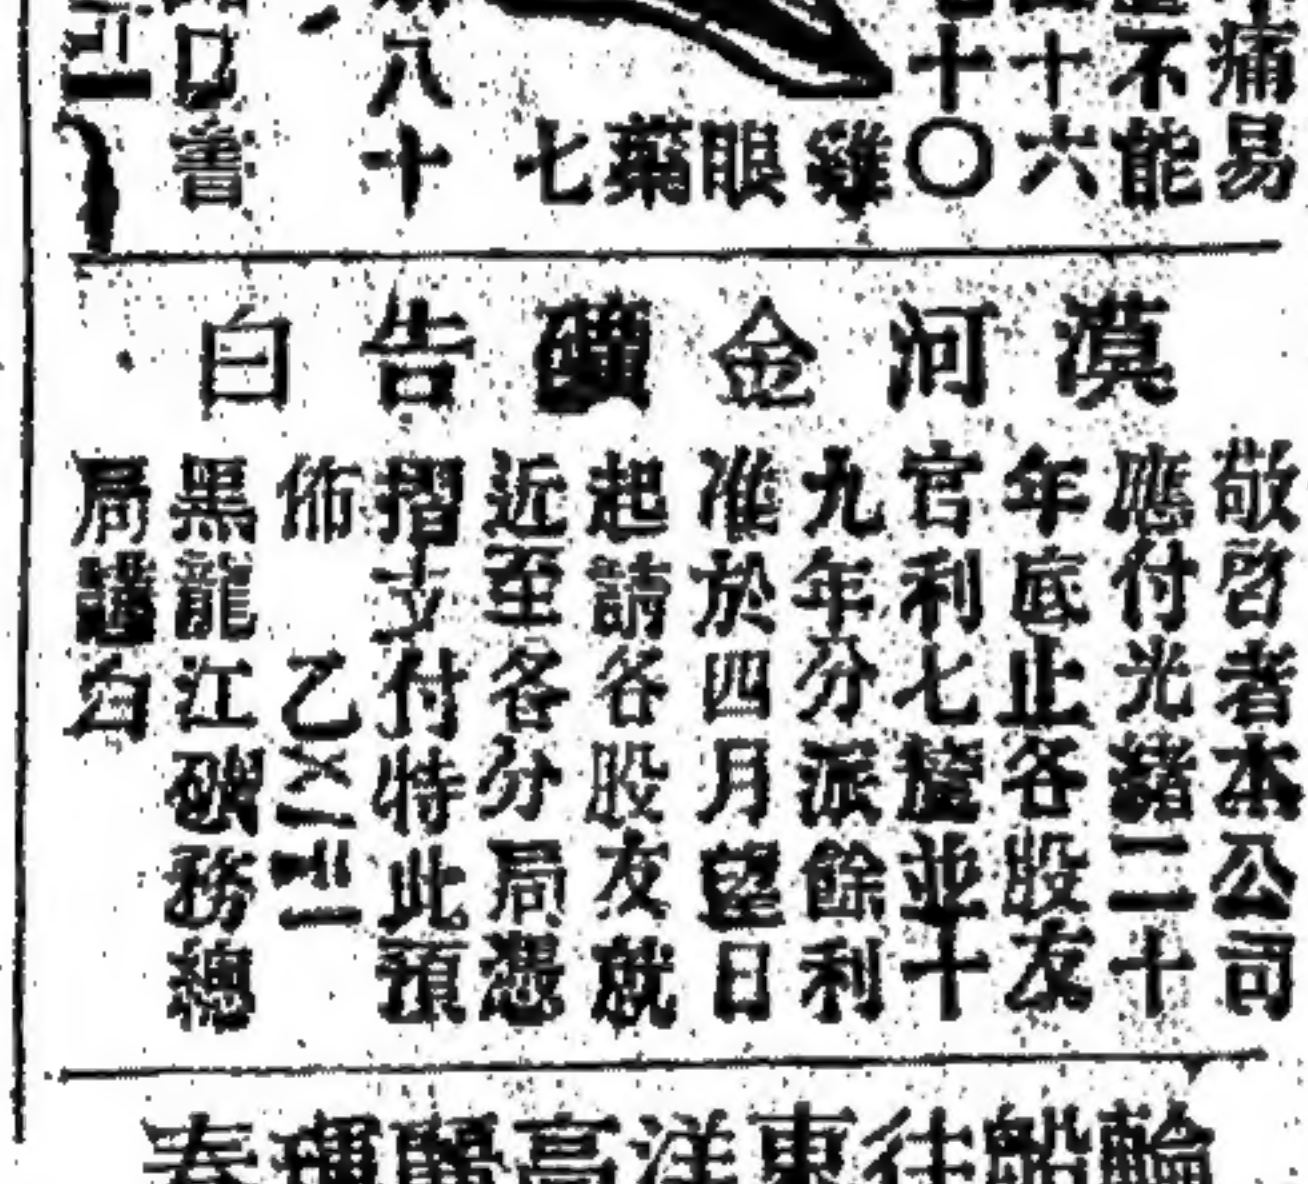 痛易
不能
十六
十〇
雞眼藥七
八十
口書
漠河金礦告白
敬啓者本公司
應付光緒二十
年底止各股友
官利七釐並十
九年分派餘利
准於四月望日
起請各股友就
近至各分局憑
摺支付特此預
佈 乙〤〡三〡
黑龍江礦務總
局謹白
輪船往東洋高麗琿春